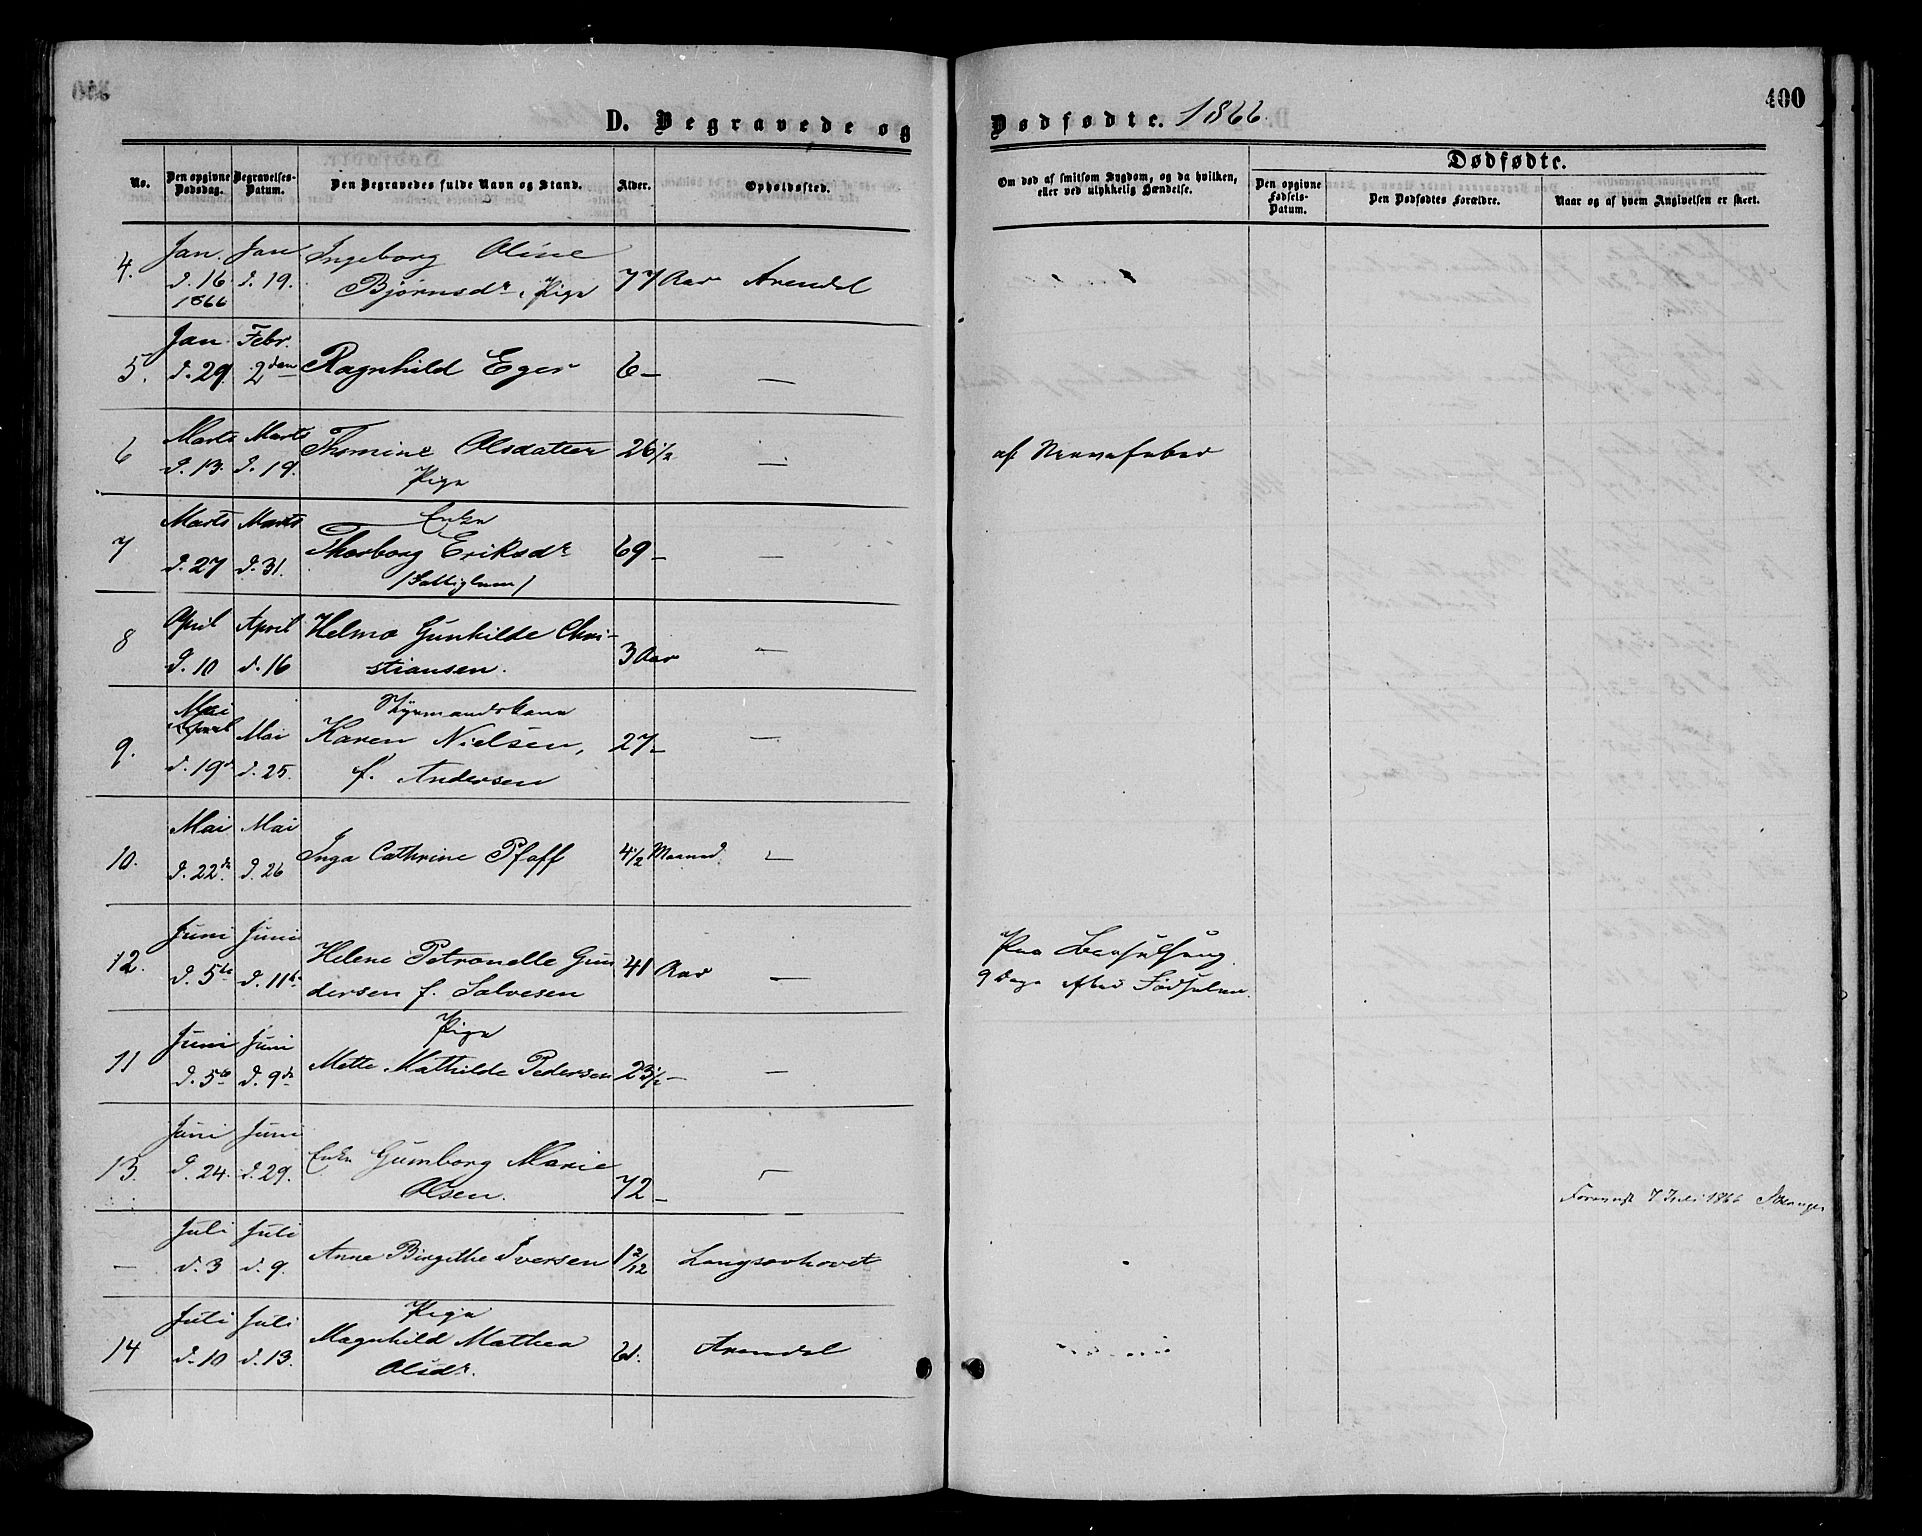 D. Begravede og
Dødfødte. 1866.
400
No.
Den opgivne Dødsdag.
Begravelses-Datum.
Den Begravedes fulde Navn og Stand.
Alder.
Opholdssted.
Om død af smitsom Sygdom, og da hvilken, eller ved ulykkelig Hændelse.
Dødfødte.
Den opgivne Fødsels-Datum.
Den Dødfødtes Forældre.
Naar og af hvem Angivelsen er skeet.
4. Jan. d. 16 1866 Jan d. 19. Ingeborg Oline
Bjørnsdr. Pige 77 Aar Arendal
5. Jan. d. 29. Febr. 2den Ragnhild Eger 6 – –
6 Marts d. 13. Marts d. 19. Thomine Olsdatter 26 1/2 – af Nervefeber
Pige
7 Marts d. 27 Marts d. 31. Enke
Thorborg Eriksdr 69 – –
/Fattiglem/
8 April d. 10 April d. 16 Helma Gunhilde Chri-
stiansen. 3 Aar –
9. Mai April d. 19d Mai d. 25. Styrmandskone
Karen Nielsen, 27 – –
f. Andersen
10. Mai d. 22de Mai d. 26 Inga Cathrine Pfaff 4 1/2 Maaned. –
12. Juni d. 5te Juni d. 11te Helene Petronelle Gun
dersen f. Salvesen 41 Aar – Paa Barselseng
9 Dage efter Fødselen.
11 Juni d. 5te Juni d. 9de Pige
Mette Mathilde Pedersen 23 1/2 – –
13. Juni d. 24. Juni d. 29. Enke Gumborg Marie
Olsen. 72 – –
7 Juli 1866
– Juli d. 3 Juli d. 9. Anne Birgithe Iversen 1 2/12 Langsævhovet
14 Juli d. 10 Juli d. 13. Pige
Magnhild Mathea 61. Arendal
Olsdr.